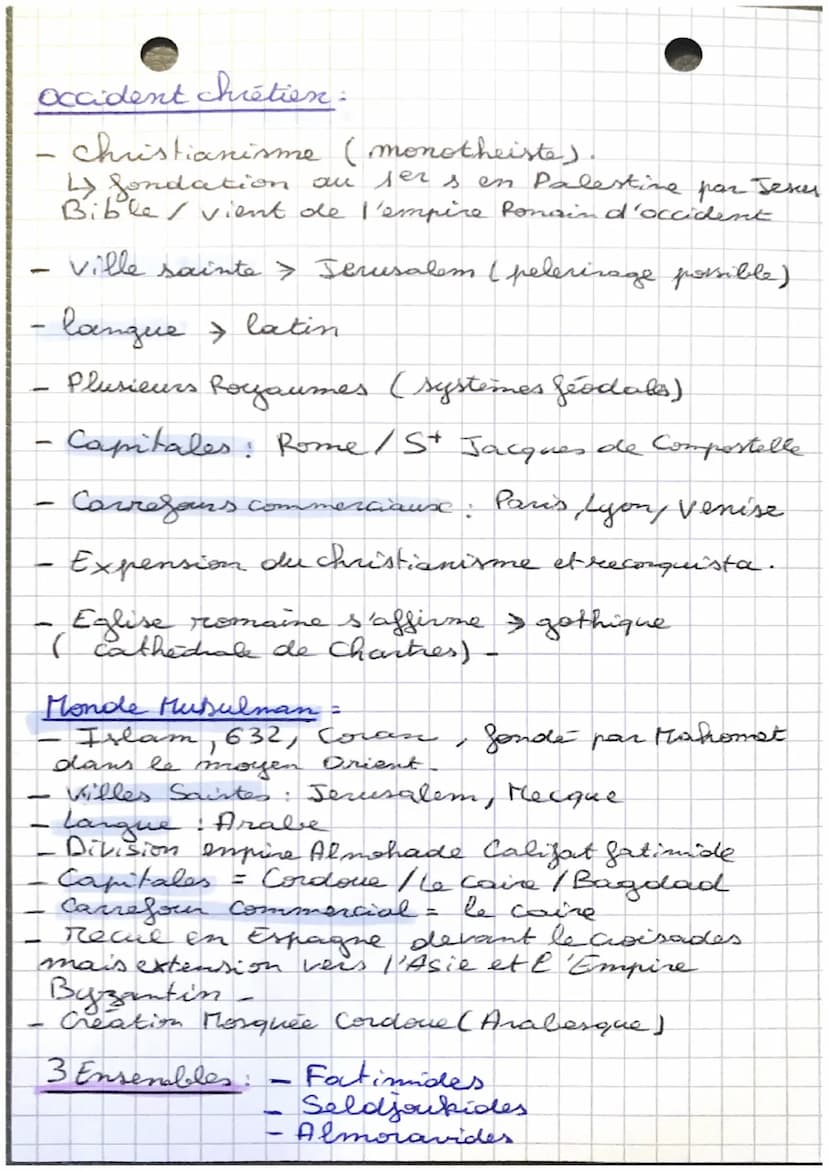 Occident chrétien :
- Christianisme (monotheiste).
↳ fondation au 1er s en Palestine par Jesus
Bible / vient de l'empire Romain d'occident
- Ville sainte → Jerusalem (pelerinage possible)
- langue → latin
- Plusieurs Royaumes (systèmes féodals)
- Capitales : Rome / St Jacques de Compostelle
- Carrefours commerciaux : Paris, Lyon, Venise
- Expension du christianisme et reconquista.
- Eglise romaine s'affirme → gothique
( cathédrale de Chartres) -
Monde Musulman =
- Islam, 632, Coran, fondé par Mahomet
dans le moyen Orient.
- Villes Saintes : Jerusalem, Mecque
- Langue : Arabe
- Division empire Almohade Califat fatimide
- Capitales = Cordoue / Le Caire / Bagdad
- Carrefour Commercial = le caire
- recul en Espagne devant le croisades
mais extension vers l'Asie et l'Empire
Byzantin -
- Création Mosquée Cordoue (Arabesque)
3 Ensembles : - Fatimides
- Seldjoukides
- Almoravides